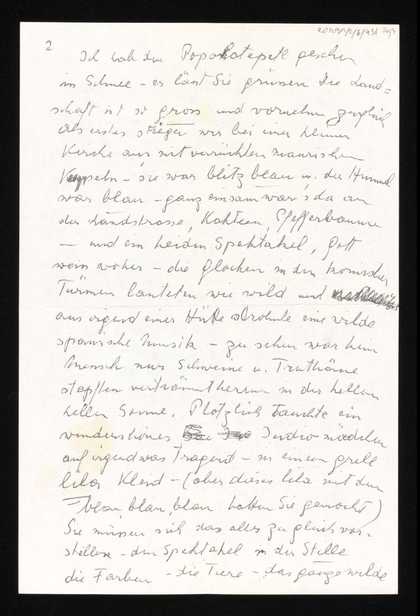 2
Ich hab den Popokatepetl gesehen
im Schnee – er lässt Sie grüssen. Die Land=
schaft ist so gross und vornehm zugleich
als erstes stiegen wir bei einer kleinen
Kirche aus mit verrückten maurischen
Kuppeln – sie war blitz blau u. der Himmel
war blau – ganz einsam war's da an
der Landstrasse, Kakteen, Pfefferbäume
— und ein heiden Spektakel, Gott
weiss woher – die Glocken in den komischen
Türmen läuteten wie wild und
aus irgend einer Hütte strömte eine wilde
spanische Musik – zu sehen war kein
Mensch nur Schweine u. Truthähne
stapften verträumt herum in der hellen
hellen Sonne. Plötzlich tauchte ein
wunderschönes Indiomädchen
auf irgendwas tragend – in einem grell
lila Kleid – (aber dieses lila mit dem
blau, blau, blau hätten Sie gemocht)
Sie müssen sich das alles zugleich vor-
stellen – den Spektakel in der Stille
die Farben – die Tiere – das ganze wilde